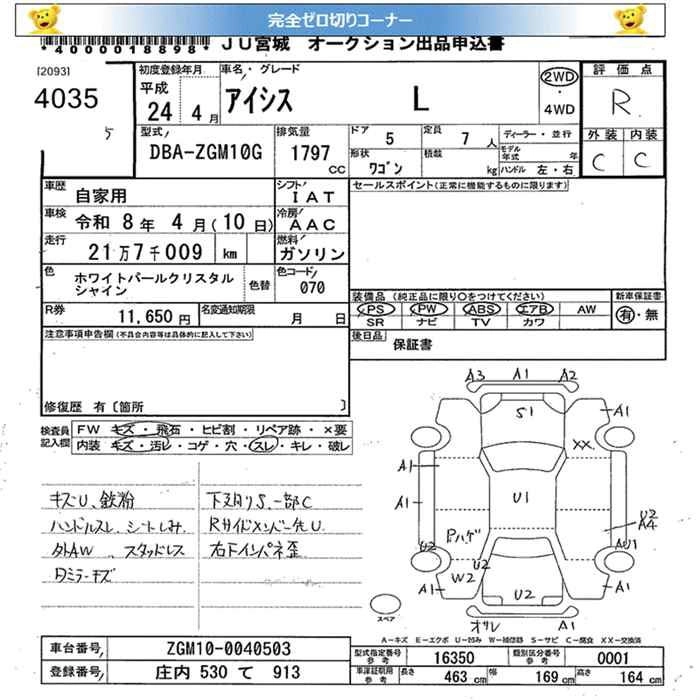 完全ゼロ切りコーナー
*4000018898* JU宮城 オークション出品申込書
[2093]
4035
5
初度登録年月
平成
24 4 月
車名・グレード
アイシス L
2WD
・
4WD
評価点
R
外装 内装
C C
型式
DBA-ZGM10G
排気量
1797 CC
ドア 5
定員 7 人
形状 ワゴン
積載 kg
ディーラー・並行
モデル年式 年
ハンドル 左・右
車歴 自家用
シフト IAT
セールスポイント(正常に機能するものに限ります)
車検 令和 8 年 4 月(10 日)
冷房 AAC
走行 21万7千009 km
燃料 ガソリン
色 ホワイトパールクリスタルシャイン
色替
色コード 070
R券 11,650 円
名変通知期限 月 日
装備品(純正品に限り○をつけてください)
PS PW ABS エアB AW
SR ナビ TV カワ
新車保証書
有・無
後日品 保証書
注意事項申告欄(不具合内容等は具体的に記入して下さい)
修復歴 有〔箇所 〕
検査員記入欄
FW キズ・飛石・ヒビ割・リペア跡・×要
内装 キズ・汚レ・コゲ・穴・スレ・キレ・破レ
キズU、鉄粉
ハンドルスレ、シートしみ
外AW、スタッドレス
下廻りS、一部C
Rサイドメンバー先U
右下インパネ歪
A3 A1 A2
S1
A1
XX
A1
A1
U1
U2
A4
Pハゲ
U2
U2
W2
AU1
A1
A1
U2
オリレ A1
スペア
A-キズ E-エクボ U-凹み W-補修跡 S-サビ C-腐食 XX-交換済
車台番号 ZGM10-0040503
登録番号 庄内 530 て 913
型式指定番号 参考 16350
類別区分番号 参考 0001
車庫証明用 参考 長さ 463 cm 幅 169 cm 高さ 164 cm